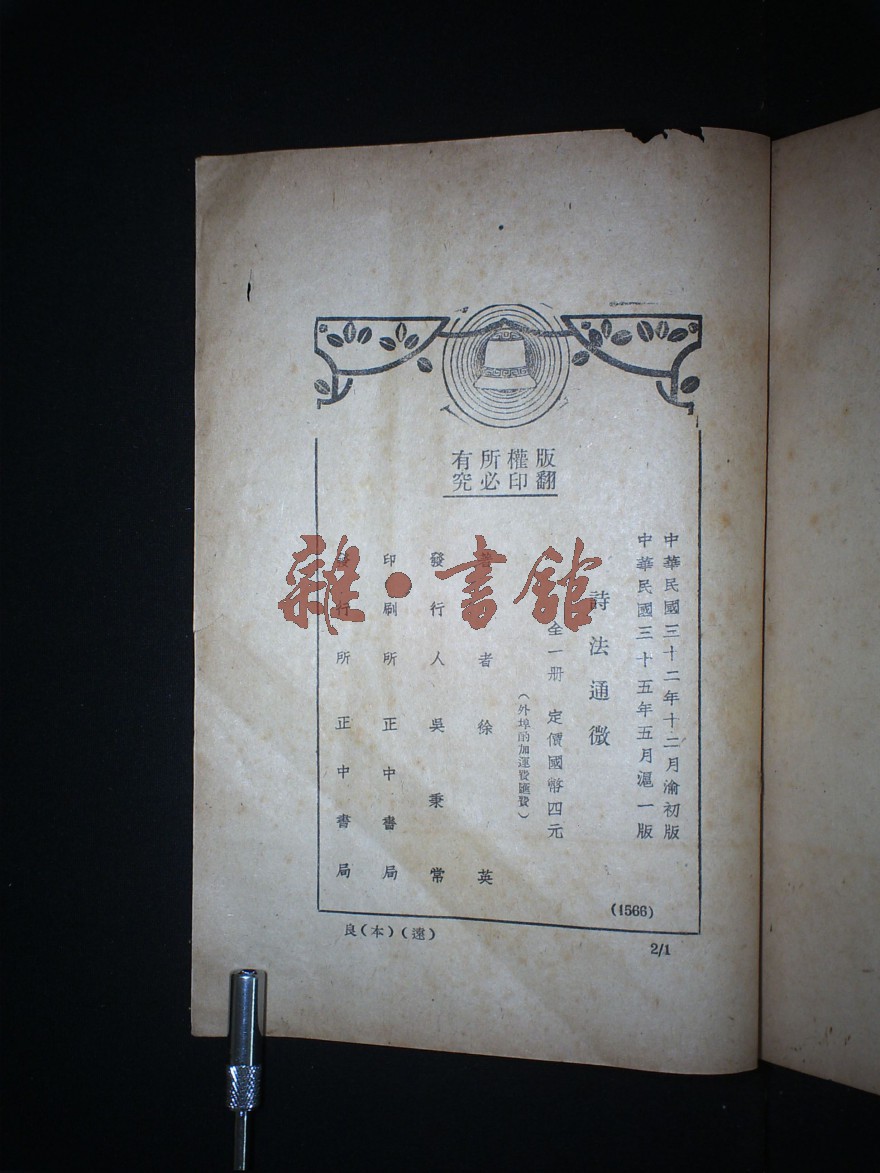 版權所有
翻印必究
中華民國三十二年十二月渝初版
中華民國三十五年五月滬一版
詩法通微
全一册 定價國幣四元
(外埠酌加運費匯費)
著者徐英
發行人吳秉常
印刷所正中書局
發行所正中書局
(1566)
良(本)(遠)
2/1
雜·書館